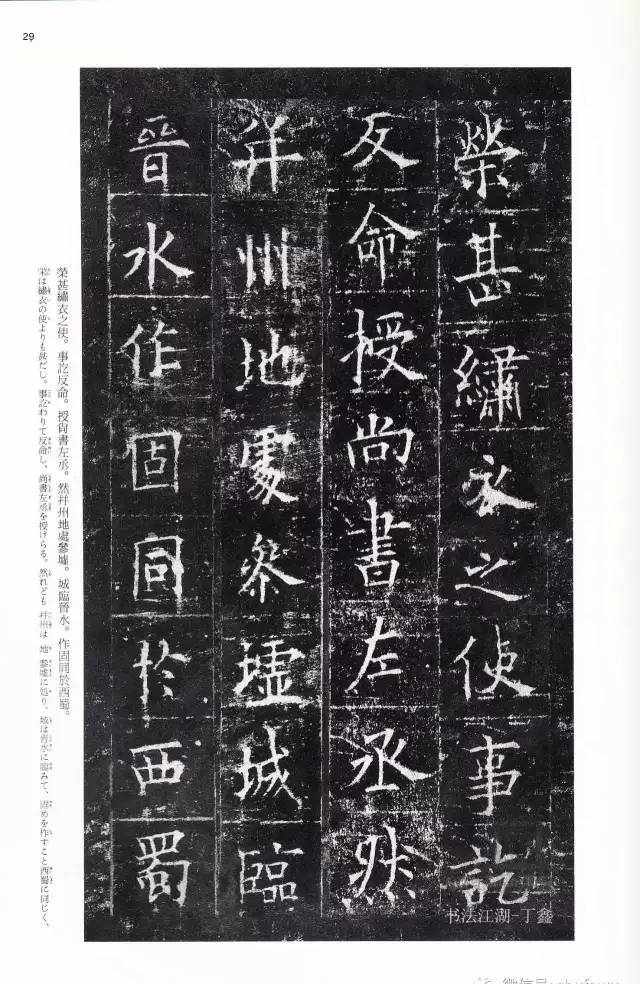 29
榮甚繡衣之使事訖
反命授尚書左丞然
幷州地處參墟城臨
晉水作固同於西蜀
榮甚繡衣之使。事訖反命。授尚書左丞。然幷州地處參墟。城臨晉水。作固同於西蜀。
榮は繡衣の使よりも甚だし。事訖わりて反命し、尚書左丞を授けらる。然れども幷州は地參墟に処り、城は晉水に臨みて、固めを作すこと西蜀に同じく、
书法江湖-丁鑫